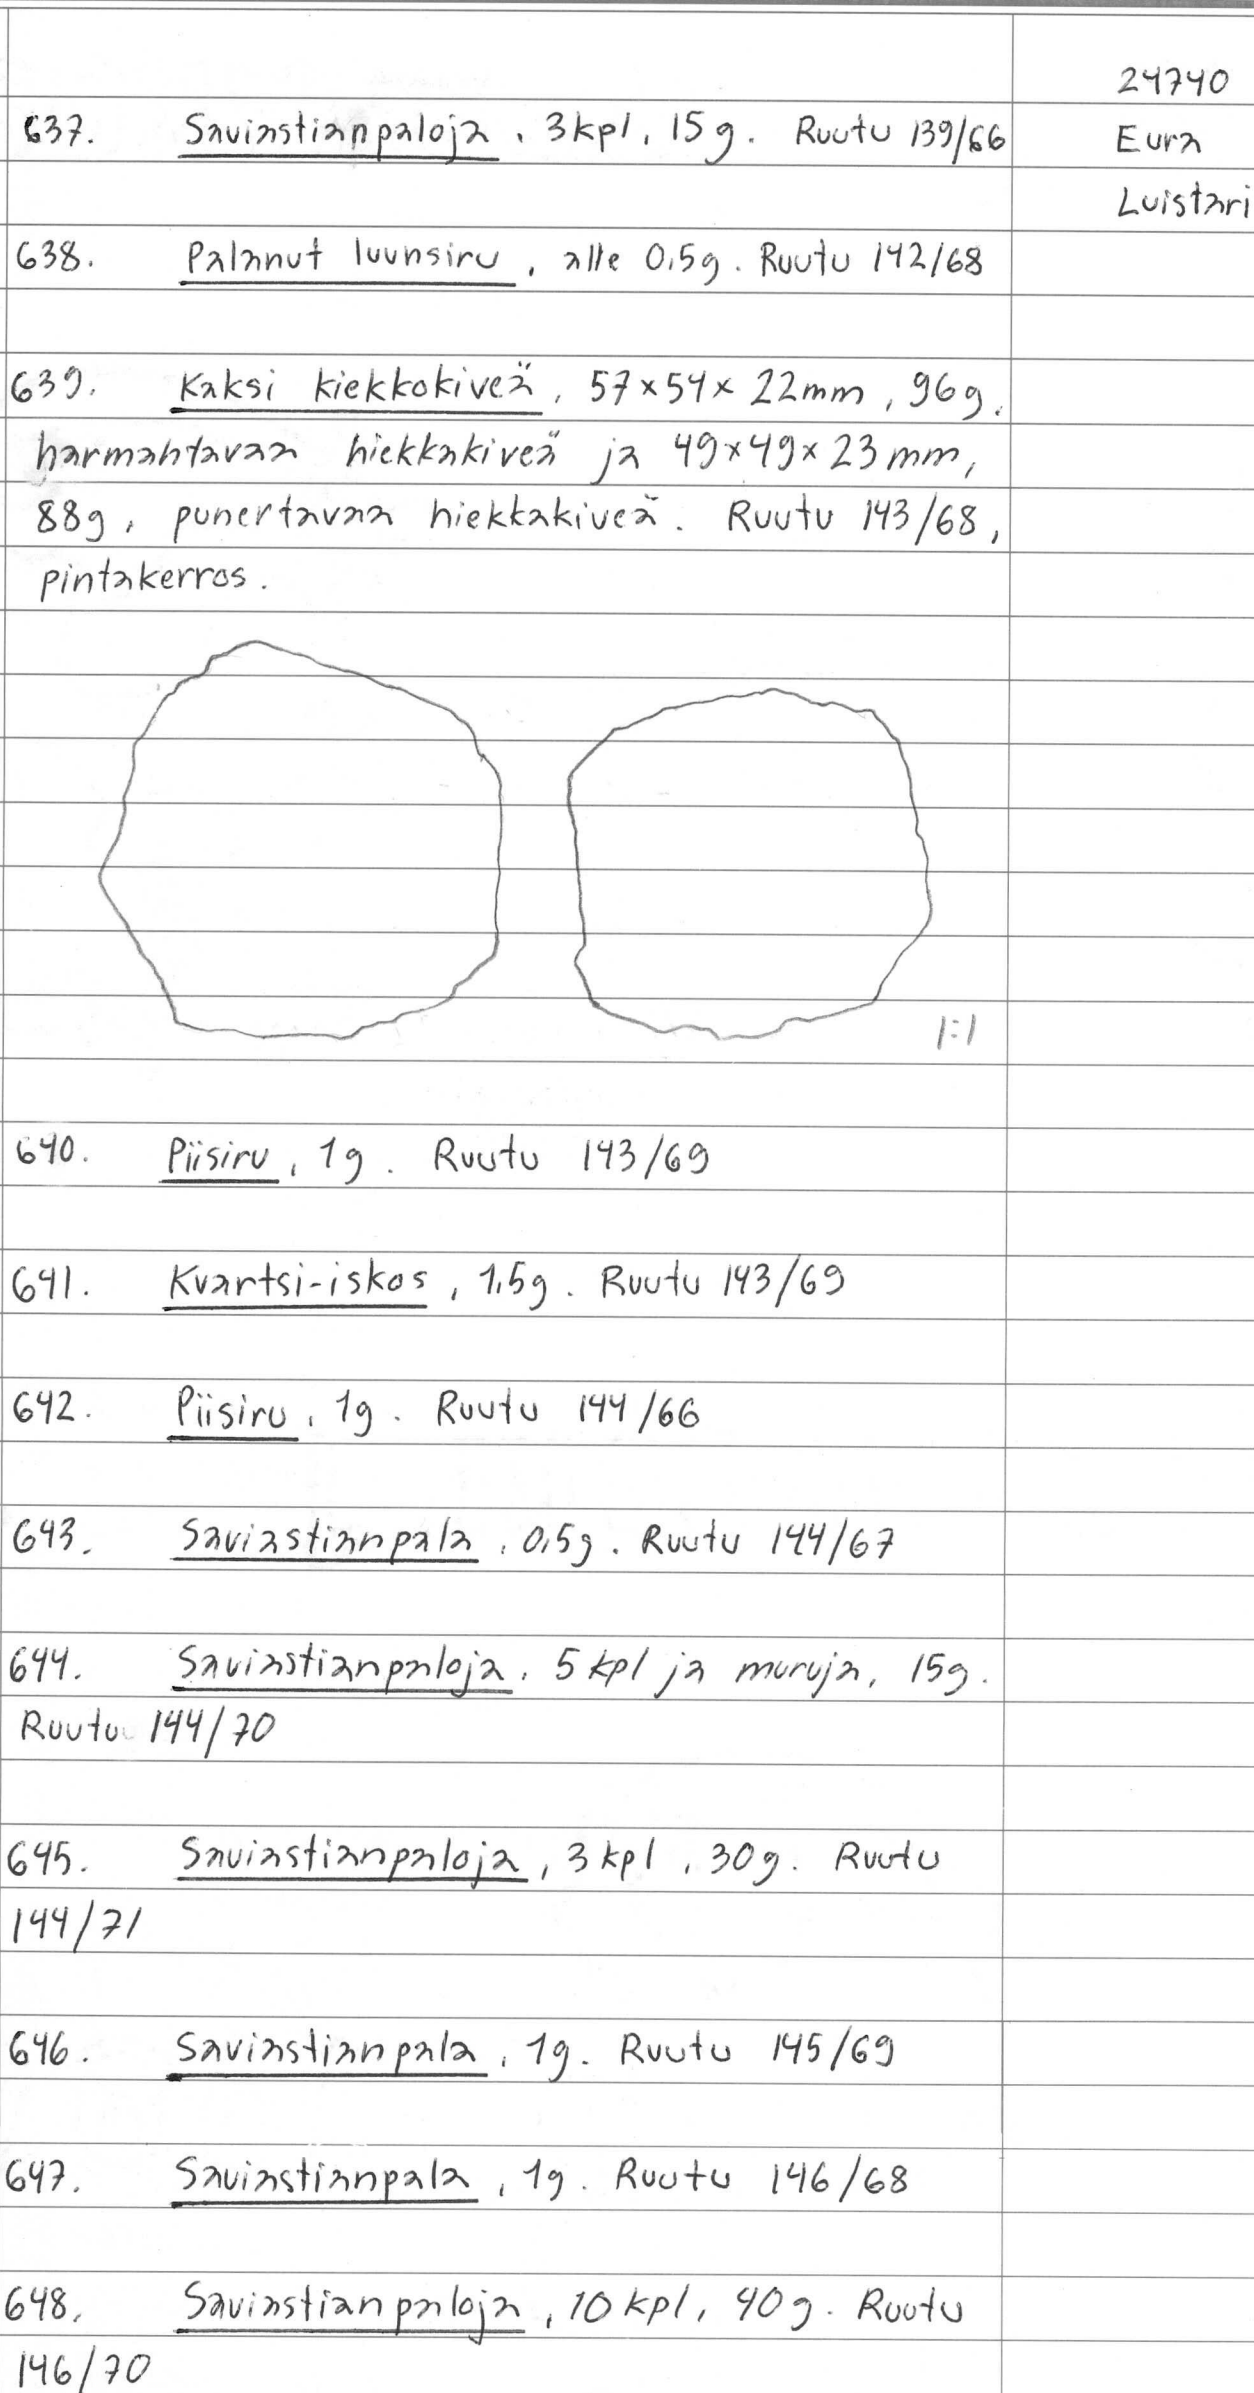 24740
Eura
Luistari
637. Saviastianpaloja, 3 kpl, 15 g. Ruutu 139/66
638. Palanut luunsiru, alle 0,5 g. Ruutu 142/68
639. Kaksi kiekkokiveä, 57 x 54 x 22 mm, 96 g,
harmahtavaa hiekkakiveä ja 49 x 49 x 23 mm,
88 g, punertavaa hiekkakiveä. Ruutu 143/68,
pintakerros.
1:1
640. Piisiru, 1 g. Ruutu 143/69
641. Kvartsi-iskos, 1,5 g. Ruutu 143/69
642. Piisiru, 1 g. Ruutu 144/66
643. Saviastianpala, 0,5 g. Ruutu 144/67
644. Saviastianpaloja, 5 kpl ja muruja, 15 g.
Ruutu 144/70
645. Saviastianpaloja, 3 kpl, 30 g. Ruutu
144/71
646. Saviastianpala, 1 g. Ruutu 145/69
647. Saviastianpala, 1 g. Ruutu 146/68
648. Saviastianpaloja, 10 kpl, 40 g. Ruutu
146/70